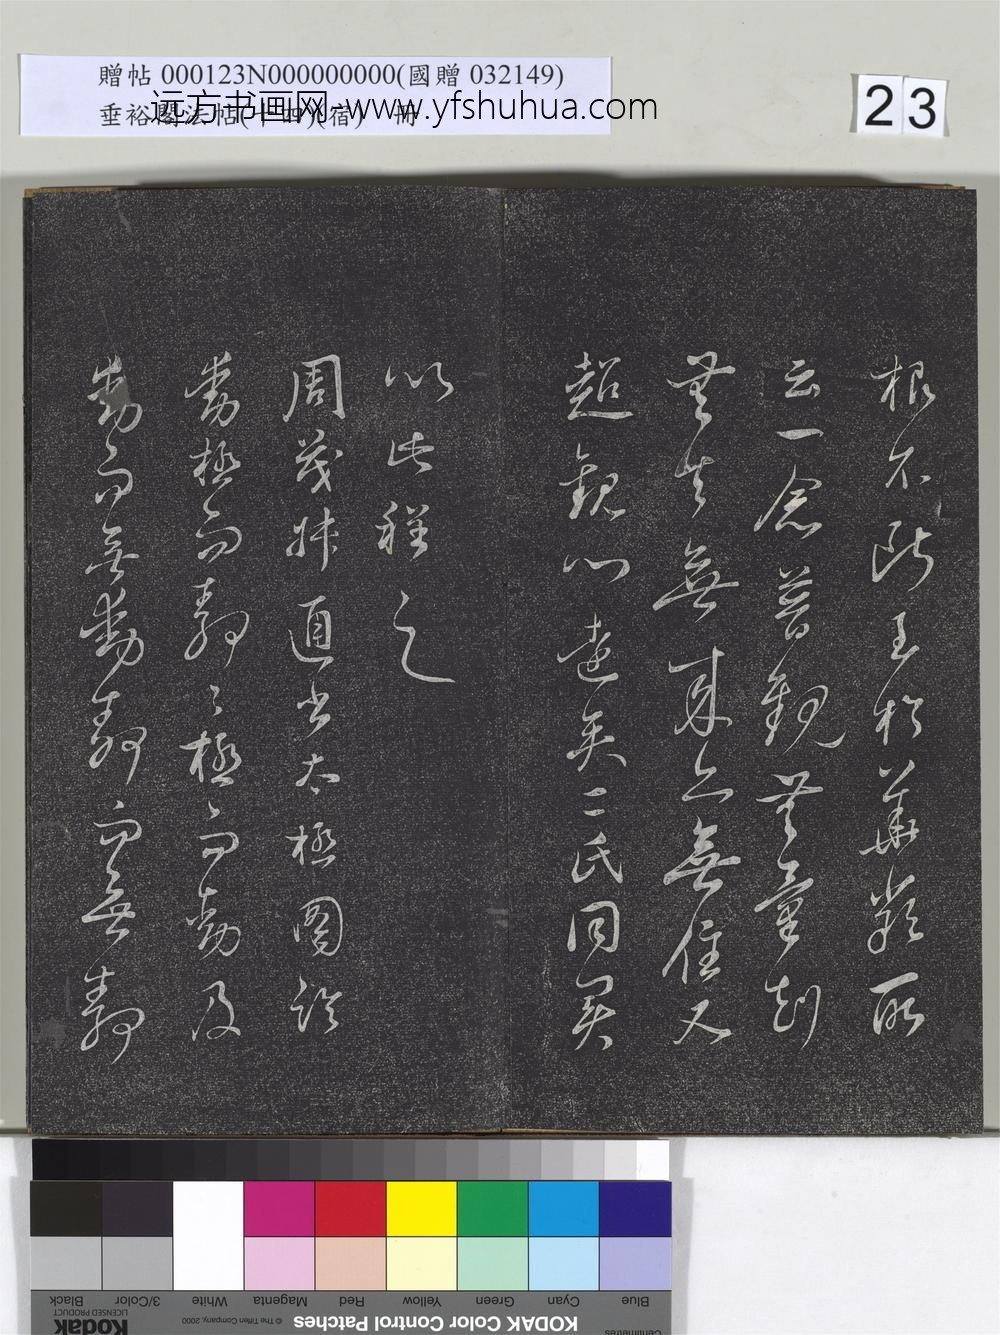 贈帖 000123N000000000(國贈 032149)
垂裕閣法帖(十四)(宿) 冊
远方书画网-www.yfshuhua.com
23
根不斷至於華嚴所
云一念普觀無量劫
無去無來亦無住又
超觀心遠矣二氏同異
以此程之
周茂叔通書太極圖說
動極而靜々極而動及
動而無動靜而無靜
Blue Cyan Green Yellow Red Magenta White 3/Color Black
KODAK Color Control Patches © The Tiffen Company, 2000 Kodak LICENSED PRODUCT
Centimetres